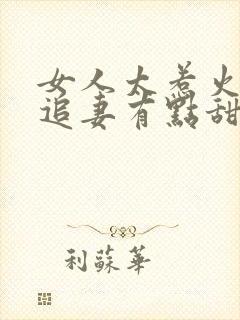 女人大惹火
追妻有點甜
利蘇華